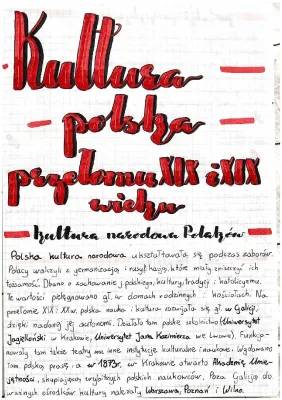 Kultura
polska
przełomu XIX i XIX
wieku
Kultura narodowa Polaków
Polska kultura narodowa ukształtowała się podczas zaborów.
Polacy walczyli z germanizacją i rusyfikacją, które miały zniszczyć ich
tożsamość. Dbano o zachowanie j. polskiego, kultury, tradycji i katolicyzmu.
Te wartości pielęgnowano gł. w domach rodzinnych i kościołach. Na
przełomie XIX i XX w. polska nauka i kultura rozwijała się gł. w Galicji,
dzięki nadanej jej autonomii. Działało tam polskie szkolnictwo (Uniwersytet
Jagielloński w Krakowie, Uniwersytet Jana Kazimierza we Lwowie). Funkcjo-
nowały tam także teatry oraz inne instytucje kulturalne i naukowe. Wydawano
tam polską prasę, a w 1873r. w Krakowie otwarto Akademię Umie-
jętności, skupiającą wybitnych polskich naukowców. Poza Galicją do
ważnych ośrodków kultury należały Warszawa, Poznań i Wilno.